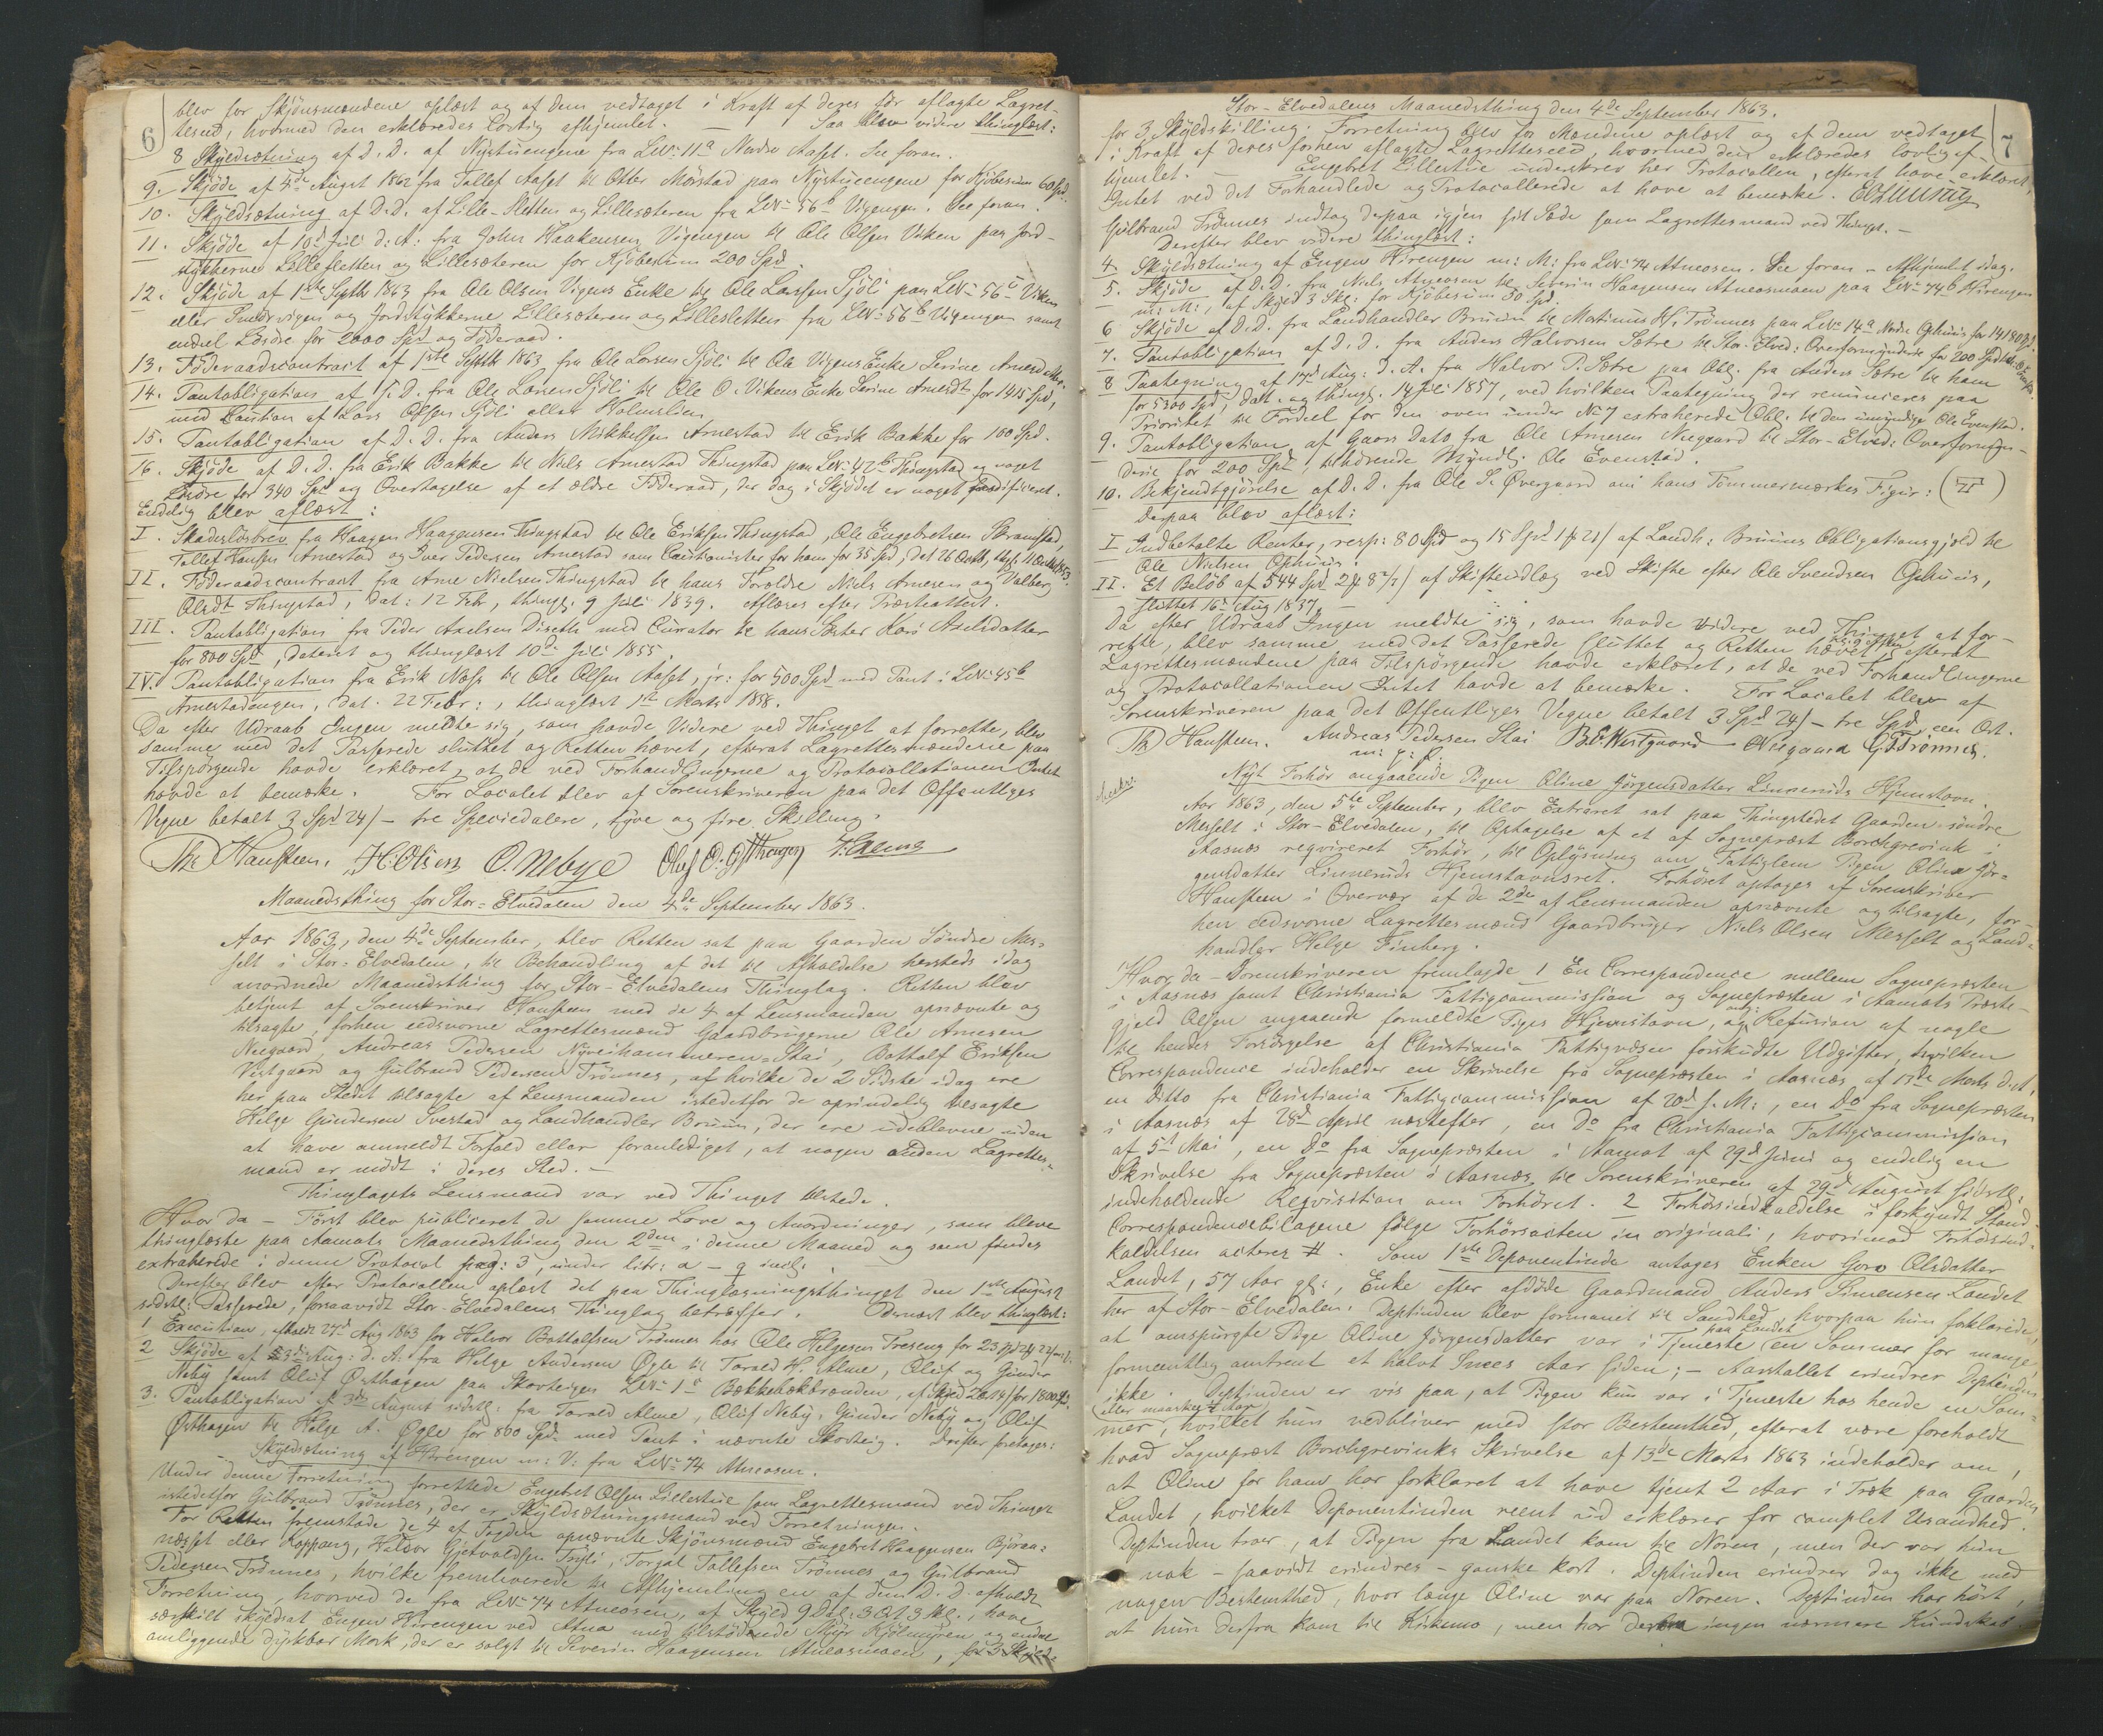 6
blev for Skjönsmændene oplæst og af dem vedtaget i Kraft af deres för aflagte Lagret-
tesed, hvormed den erklæredes lovlig afhjemlet. — Saa blev videre thinglæst:
8 Skyldsætning af D. D. af Nystuengene fra LNr: 11a Nordre Aaset. See foran.
9. Skjöde af 4de August 1862 fra Tollef Aaset til Otter Mörstad paa Nystuengene for Kjöbesum 60 Spd.
10. Skyldsætning af D. D. af Lille-Sletten og Lillesæteren fra LNr 56b Vigengen. See foran.
11. Skjöde af 10d Juli d: A: fra John Haakensen Vigengen til Ole Olsen Viken paa Jord-
stykkerne Lillesletten og Lillesæteren for Kjöbesum 200 Spd.
12. Skjöde af 1ste Septbr 1863 fra Ole Olsen Vigens Enke til Ole Larsen Sjöli paa LNr 56a Viken
eller Sundsvigen og Jordstykkerne Lillesæteren og Lillesletten fra LNr: 56b Vigengen samt
endeel Lösöre for 2000 Spd og Föderaad.
13. Föderaadscontract af 1ste Septbr 1863 fra Ole Larsen Sjöli til Ole Vigens Enke Serine Arnesd
14. Pantobligation af S. D. fra Ole Larsen Sjöli til Ole O. Vikens Enke Serine Arnesdt for 1415 Spd,
med Caution af Lars Olsen Sjöli eller Holmslien
15. Pantobligation af D. D. fra Anders Mikkelsen Arnestad til Erik Bakke for 100 Spd.
16. Skjöde af D. D. fra Erik Bakke til Niels Arnestad Thingstad paa LNr: 42b Thingstad og noget
Lösöre for 340 Spd og Overtagelse af et ældre Föderaad, der dog i Skjödet er noget modificeret.
Endelig blev aflæst:
I. Skadeslösbrev fra Haagen Haagensen Thingstad til Ole Eriksen Thingstad, Ole Engebretsen Skramstad,
Tollef Hansen Arnestad og Iver Pedersen Arnestad som Cautionister for ham for 35 Spd, dat 26 Octbr,
II. Föderaadscontract fra Arne Nielsen Thingstad til hans Forældre Niels Arnesen og Valborg
Olsdt Thingstad, dat: 12 Febr, thingl: 9 Juli 1839. Aflæses efter Præsteattest.
III. Pantobligation fra Peder Axelsen Diseth med Curator til hans Söster Kari Axelsdatter
for 800 Spd, dateret og thinglæst 10de Juli 1855.
IV. Pantobligation fra Erik Næss til Ole Olsen Aaset, jr: for 500 Spd med Pant i LNr: 45b
Arnestadengen, dat. 22 Febr:, thinglæst 1st Marts 1858.
Da efter Udraab Ingen meldte sig, som havde Videre ved Thinget at forrette, blev
samme med det Passerede sluttet og Retten hævet, efterat Lagrettesmændene paa
Tilspörgende havde erklæret, at de ved Forhandlingerne og Protocollationen Intet
havde at bemærke. For Localet blev af Sorenskriveren paa det Offentliges
Vegne betalt 3 Spd 24/ — tre Speciedalere, tyve og fire Skilling.
Th Hansteen. H. Olsen O. Nebye Oluf O. Østhagen
Maanedsthing for Stor-Elvedalen den 4de September 1863.
Aar 1863, den 4de September, blev Retten sat paa Gaarden Söndre Mes-
selt i Stor-Elvedalen, til Behandling af det til Afholdelse hersteds idag
anordnede Maanedsthing for Stor-Elvedalens Thinglag. Retten blev
betjent af Sorenskriver Hansteen med de 4 af Lensmanden opnævnte og
tilsagte, forhen eedsvorne Lagrettesmænd Gaardbrugerne Ole Arnesen
Neegaard, Andreas Pedersen Nyveihammeren-Stai, Bottolf Eriksen
Vestgaard og Gulbrand Pedersen Trönnes, af hvilke de 2 Sidste idag ere
her paa Stedet tilsagte af Lensmanden istedetfor de oprindelig tilsagte
Helge Gundersen Svestad og Landhandler Bruun, der ere udeblevne uden
at have anmeldt Forfald eller foranlediget, at nogen anden Lagrettes-
mand er mödt i deres Sted. —
Thinglagets Lensmand var ved Thinget tilstede.
Hvor da — Först blev publiceret de samme Love og Anordninger, som bleve
thinglæste paa Aamots Maanedsthing den 2den i denne Maaned og som findes
extraherede i denne Protocol pag: 3, under litr: a — q incl:
Derefter blev efter Protocollen oplæst det paa Thinglæsningsthinget den 1ste August
sidstl: Passerede, forsaavidt Stor-Elvedalens Thinglag betræffer. Dernæst blev thinglæst:
1 Execution, afholdt 27d Aug 1863 for Halvor Bottolfsen Trönnes hos Ole Helgesen Treseng for 23 Spd
2 Skjöde af 3die Aug: d. A: fra Helge Andersen Øgle til Tarald H. Alme, Oluf og Gunder
Neby samt Oluf Østhagen paa Skovteigen LNr 1 Bækkebækbraaden, af Skyld for 1800 Spd.
3. Pantobligation af 3die August sidstl: fra Tarald Alme, Oluf Neby, Gunder Neby og Oluf
Østhagen til Helge A. Øgle for 800 Spd med Pant i nævnte Skovteig. Derefter foretages:
Skyldsætning af Hirengen m: V: fra LNr 74 Atneosen.
Under denne Forretning forrettede Engebret Olsen Lillestue som Lagrettesmand ved Thinget
istedetfor Gulbrand Trönnes, der er Skyldsætningsmand ved Forretningen.
For Retten fremstode de 4 af Fogden opnævnte Skjönsmænd Engebret Haagensen Björaa-
næsset eller Koppang, Halvor Gjetvoldsen Trysli, Torgal Tollefsen Trönnes og Gulbrand
Pedersen Trönnes, hvilke fremleverede til Afhjemling en af dem D. D. afholdt
Forretning, hvorved de fra LNr 74 Atneosen, af Skyld 9 Dal: 3 Ort 3 Skl., have
særskilt skyldsat Engen Hirengen ved Atna med tilstödende Myr Kjölmyren og endne
omliggende dyrkbar Mark, der er solgt til Severin Haagensen Atneosmoen, for 3 Skyld-
Stor-Elvedalens Maanedsthing den 4de September 1863.
7
for 3 Skyldskilling. Forretning blev for Mændene oplæst og af dem vedtaget
i Kraft af deres forhen aflagte Lagretteseed, hvormed den erklæredes lovlig af-
hjemlet. — Engebret Lillestue underskrev her Protocollen, efterat have erklæret,
Intet ved det Forhandlede og Protocollerede at have at bemærke.
Gulbrand Trönnes indtog derpaa igjen sit Sæde som Lagrettesmand ved Thinget. —
Derefter blev videre thinglæst:
4. Skyldsætning af Engen Hirengen m: M: fra LNr: 74 Atneosen. See foran — Afhjemlet idag.
5. Skjöde af D. D. fra Niels Atneosen til Severin Haagensen Atneosmoen paa LNr 74b Hirengen
m: M:, af Skyld 3 Skl: for Kjöbesum 30 Spd.
6 Skjöde af D. D. fra Landhandler Bruun til Martinus H. Trönnes paa LNr 14a Nordre Ophuus for 14180 Spd.
7. Pantobligation af D. D. fra Anders Halvorsen Sætre til Stor-Elved: Overformynderie for 200 Spd
8 Paategning af 17d Aug: d. A. fra Halvor P. Sætre paa Obl: fra Anders Sætre til ham
for 5300 Spd, dat. og thingl. 14 Juli 1857, ved hvilken Paategning der renunceres paa
Prioritet til Fordeel for den oven under No 7 extraherede Obl: til den umyndige Ole Evenstad.
9. Pantobligation af Gaars Dato fra Ole Arnesen Neegaard til Stor-Elved: Overformyn-
derie for 200 Spd, tilhörende Myndl: Ole Evenstad.
10. Bekjendtgjörelse af D. D. fra Ole S. Øvergaard om hans Tömmermærkes Figur:
Derpaa blev aflæst:
I Indbetalte Renter, resp: 80 Spd og 15 Spd af Landh: Bruuns Obligationsgjeld til
Ole Nielsen Ophuus.
II. Et Belöb af 544 Spd af Skifteudlæg ved Skifte efter Ole Svendsen Ophuus,
sluttet 16de Aug 1837. —
Da efter Udraab Ingen meldte sig, som havde videre ved Thinget at for-
rette, blev samme med det Passerede sluttet og Retten hævet, efterat
Lagrettesmændene paa Tilspörgende havde erklæret, at de ved Forhandlingerne
og Protocollationen Intet havde at bemærke. For Localet blev af
Sorenskriveren paa det Offentliges Vegne betalt 3 Spd 24/ — tre Spd een Ort.
Th Hansteen. Andreas Pedersen Stai B. E. Westgaard Neegaard G. Trönnes.
m: p: P:
Nyt Forhör angaaende Pigen Oline Jörgensdatter Linneruds Hjemstavn.
Aar 1863, den 5te September, blev Extraret sat paa Thingstedet Gaarden söndre
Messelt i Stor-Elvedalen, til Optagelse af et af Sognepræst Borchgrevink i
Aasnæs reqvireret Forhör, til Oplysning om Fattiglem Pigen Oline Jör-
gensdatter Linneruds Hjemstavnsret. Forhöret optages af Sorenskriver
Hansteen i Overvær af de 2de af Lensmanden opnævnte og tilsagte, for-
hen eedsvorne Lagrettesmænd Gaardbruger Niels Olsen Messelt og Land-
handler Helge Finberg.
Hvor da — Sorenskriveren fremlagde 1 En Correspondence mellem Sognepræsten
i Aasnæs samt Christiania Fattigcommission og Sognepræsten i Aamots Præste-
gjeld Olsen angaaende formeldte Piges Hjemstavn, ang: Refusion af nogle
til hendes Forsörgelse af Christiania Fattigvæsen forskudte Udgifter, hvilken
Correspondence indeholder en Skrivelse fra Sognepræsten i Aasnæs af 13de Marts d. A,
en Ditto fra Christiania Fattigcommission af 20d s. M:, en Do fra Sognepræsten
i Aasnæs af 28d April næstefter, en Do fra Christiania Fattigcommission
af 5t Mai, en Do fra Sognepræsten i Aamot af 29d Juni og endelig en
Skrivelse fra Sognepræsten i Aasnæs til Sorenskriveren af 29d August sidstl:
indeholdende Reqvisition om Forhöret. 2 Forhörsindkaldelse i forkyndt Stand.
Correspondencebilagene fölge Forhörsacten in originali, hvorimod Forhörsind-
kaldelsen acteres #. Som 1ste Deponentinde antages Enken Goro Olsdatter
Landet, 57 Aar gl:, Enke efter afdöde Gaardmand Anders Simensen Landet
her af Stor-Elvedalen. Deptinden blev formanet til Sandhed, hvorpaa hun forklarede,
at omspurgte Pige Oline Jörgensdatter var i Tjeneste paa Landet en Sommer for mange,
formentlig omtrent et halvt Snees Aar siden; — Aarstallet erindrer Deptinden
ikke. Deptinden er vis paa, at Pigen kun var i Tjeneste hos hende en Som-
mer (eller maaskee ½ Aar), hvilket hun vedbliver med stor Bestemthed, efterat være foreholdt
hvad Sognepræst Borchgrevinks Skrivelse af 13de Marts 1863 indeholder om,
at Oline for ham har forklaret at have tjent 2 Aar i Træk paa Gaarden
Landet, hvilket Deponentinden reent ud erklærer for complet Usandhed.
Deptinden troer, at Pigen fra Landet kom til Noren, men der var hun
nok — saavidt erindres — ganske kort. Deptinden erindrer dog ikke med
nogen Bestemthed, hvor længe Oline var paa Noren. Deptinden har hört,
at hun derfra kom til Kirkemo, men har derom ingen nærmere Kundskab.